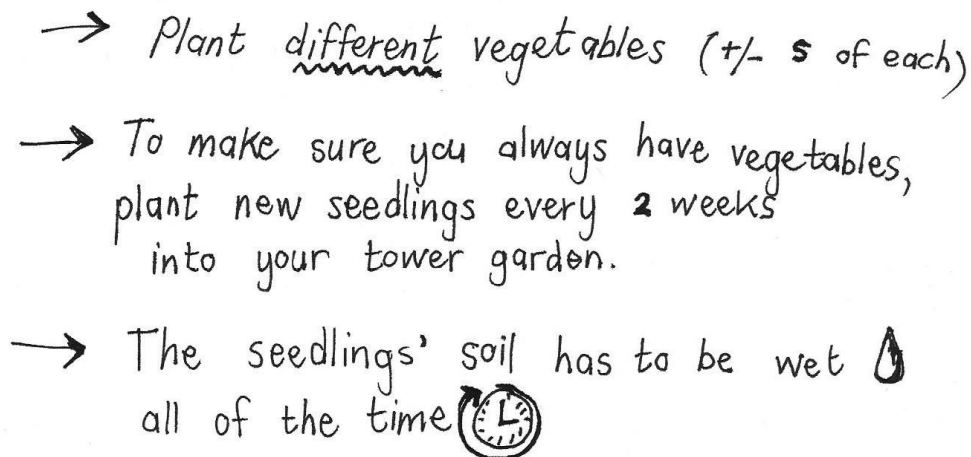 → Plant different vegetables (+/- 5 of each)
→ To make sure you always have vegetables,
plant new seedlings every 2 weeks
into your tower garden.
→ The seedlings' soil has to be wet
all of the time